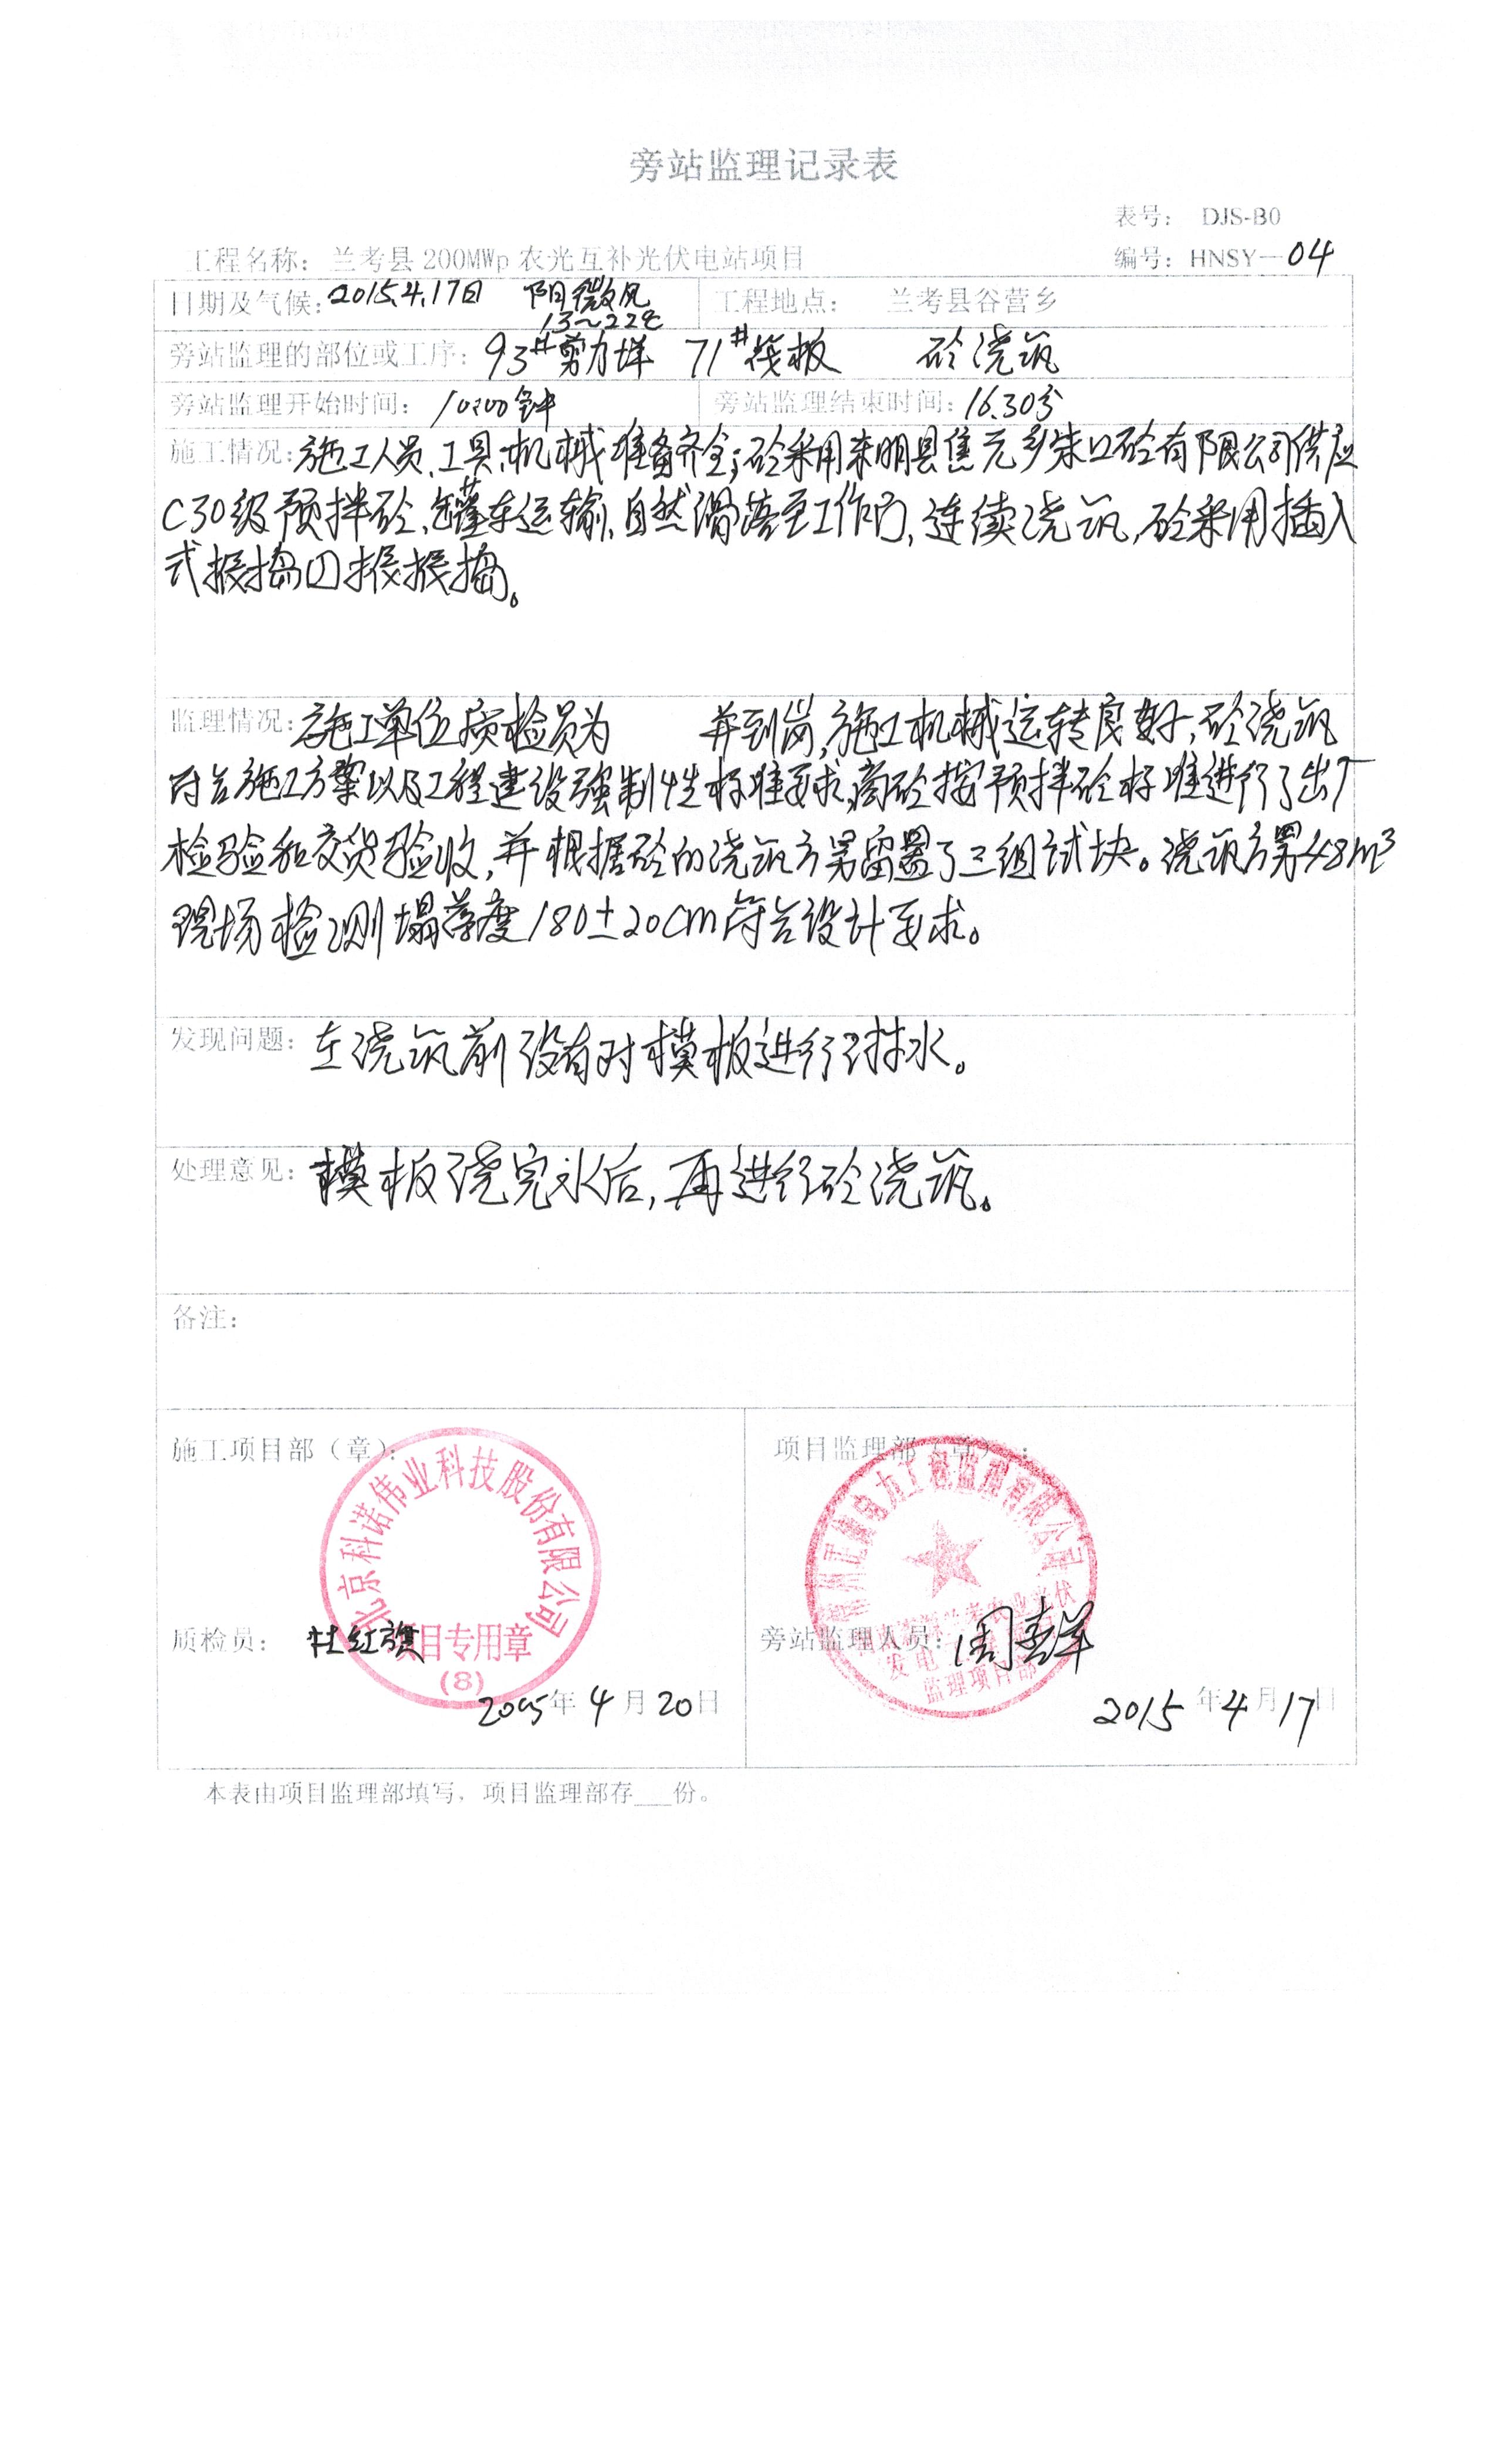 旁站监理记录表
表号： DJS-B0
工程名称：兰考县 200MWp 农光互补光伏电站项目 编号：HNSY—04
日期及气候：2015.4.17日 阴 微风 工程地点： 兰考县谷营乡
13~22℃
旁站监理的部位或工序：93#剪力墙 71#筏板 砼浇筑
旁站监理开始时间：10:00钟 旁站监理结束时间：16.30分
施工情况：施工人员、工具、机械准备齐全；砼采用东明县焦元乡朱口砼有限公司供应
C30级预拌砼，罐车运输，自然滑落至工作面，连续浇筑，砼采用插入
式振捣
监理情况：施工单位质检员为 并到岗，施工机械运转良好，砼浇筑
符合施工方案以及工程建设强制性标准要求，商砼按预拌砼标准进行了出厂
检验和交货验收，并根据砼的浇筑方量留置了三组试块。浇筑方量48m³
现场检测塌落度180±20cm符合设计要求。
发现问题：在浇筑前没有对模板进行洒水。
处理意见：模板浇完水后，再进行砼浇筑。
备注：
施工项目部（章）： 项目监理部（章）：
北京科诺伟业科技股份有限公司
项目专用章
(8)
电力工程监理有限公司
发电
监理项目部
质检员： 杜红旗 旁站监理人员：周
年 4 月 20 日 2015 年 4 月 17 日
本表由项目监理部填写，项目监理部存___份。